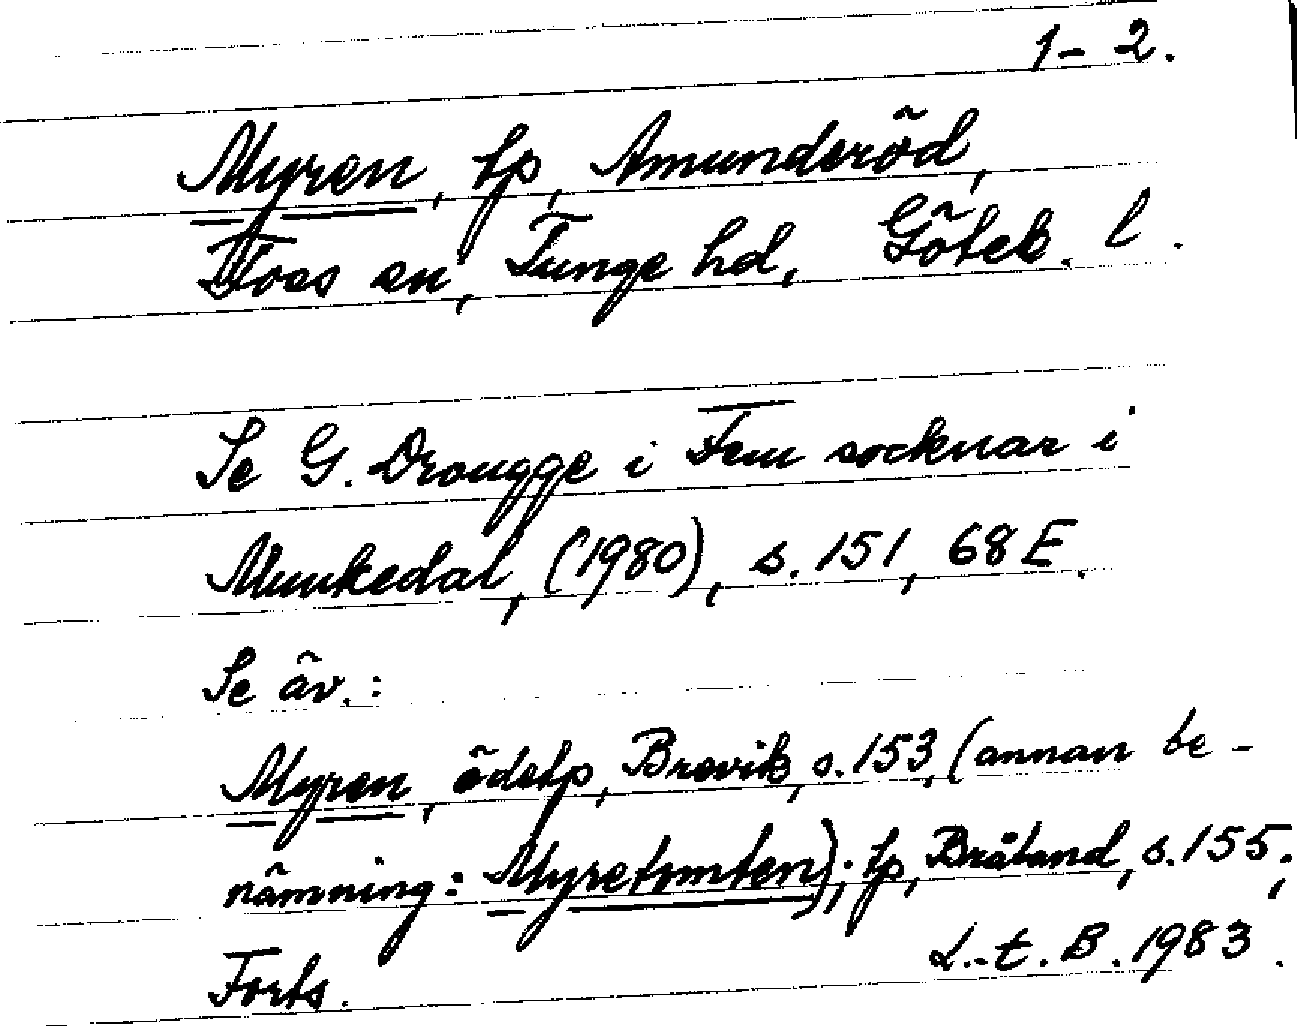 1-2.
Myren, tp, Amunderöd,
Foss sn, Tunge hd, Göteb. l.
Se G. Drougge i Fem socknar i
Munkedal, (1980), s. 151, 68E.
Se äv.:
Myren, ödetp, Brevik, s. 153, (annan be-
nämning: Myretomten); tp, Bråland, s. 155;
Forts. L.-t. B. 1983.